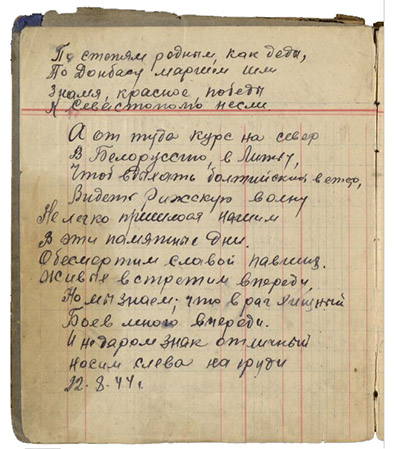 По степям родным, как деды,
По Донбасу маршем шли
Знамя, красное победы
К Севастополю несли
А от туда курс на север
В Белоруссию, в Литву,
Чтоб вдыхать болтийский ветер,
Видеть Рижскую волну
Не легко пришлося нашим
В эти памятные дни.
Обесмертим славой павших.
Живые встретим впереди,
Но мы знаем, что враг хищный
Боев много впереди.
И недаром знак отличный
носим слева на груди
12-8-44 г.